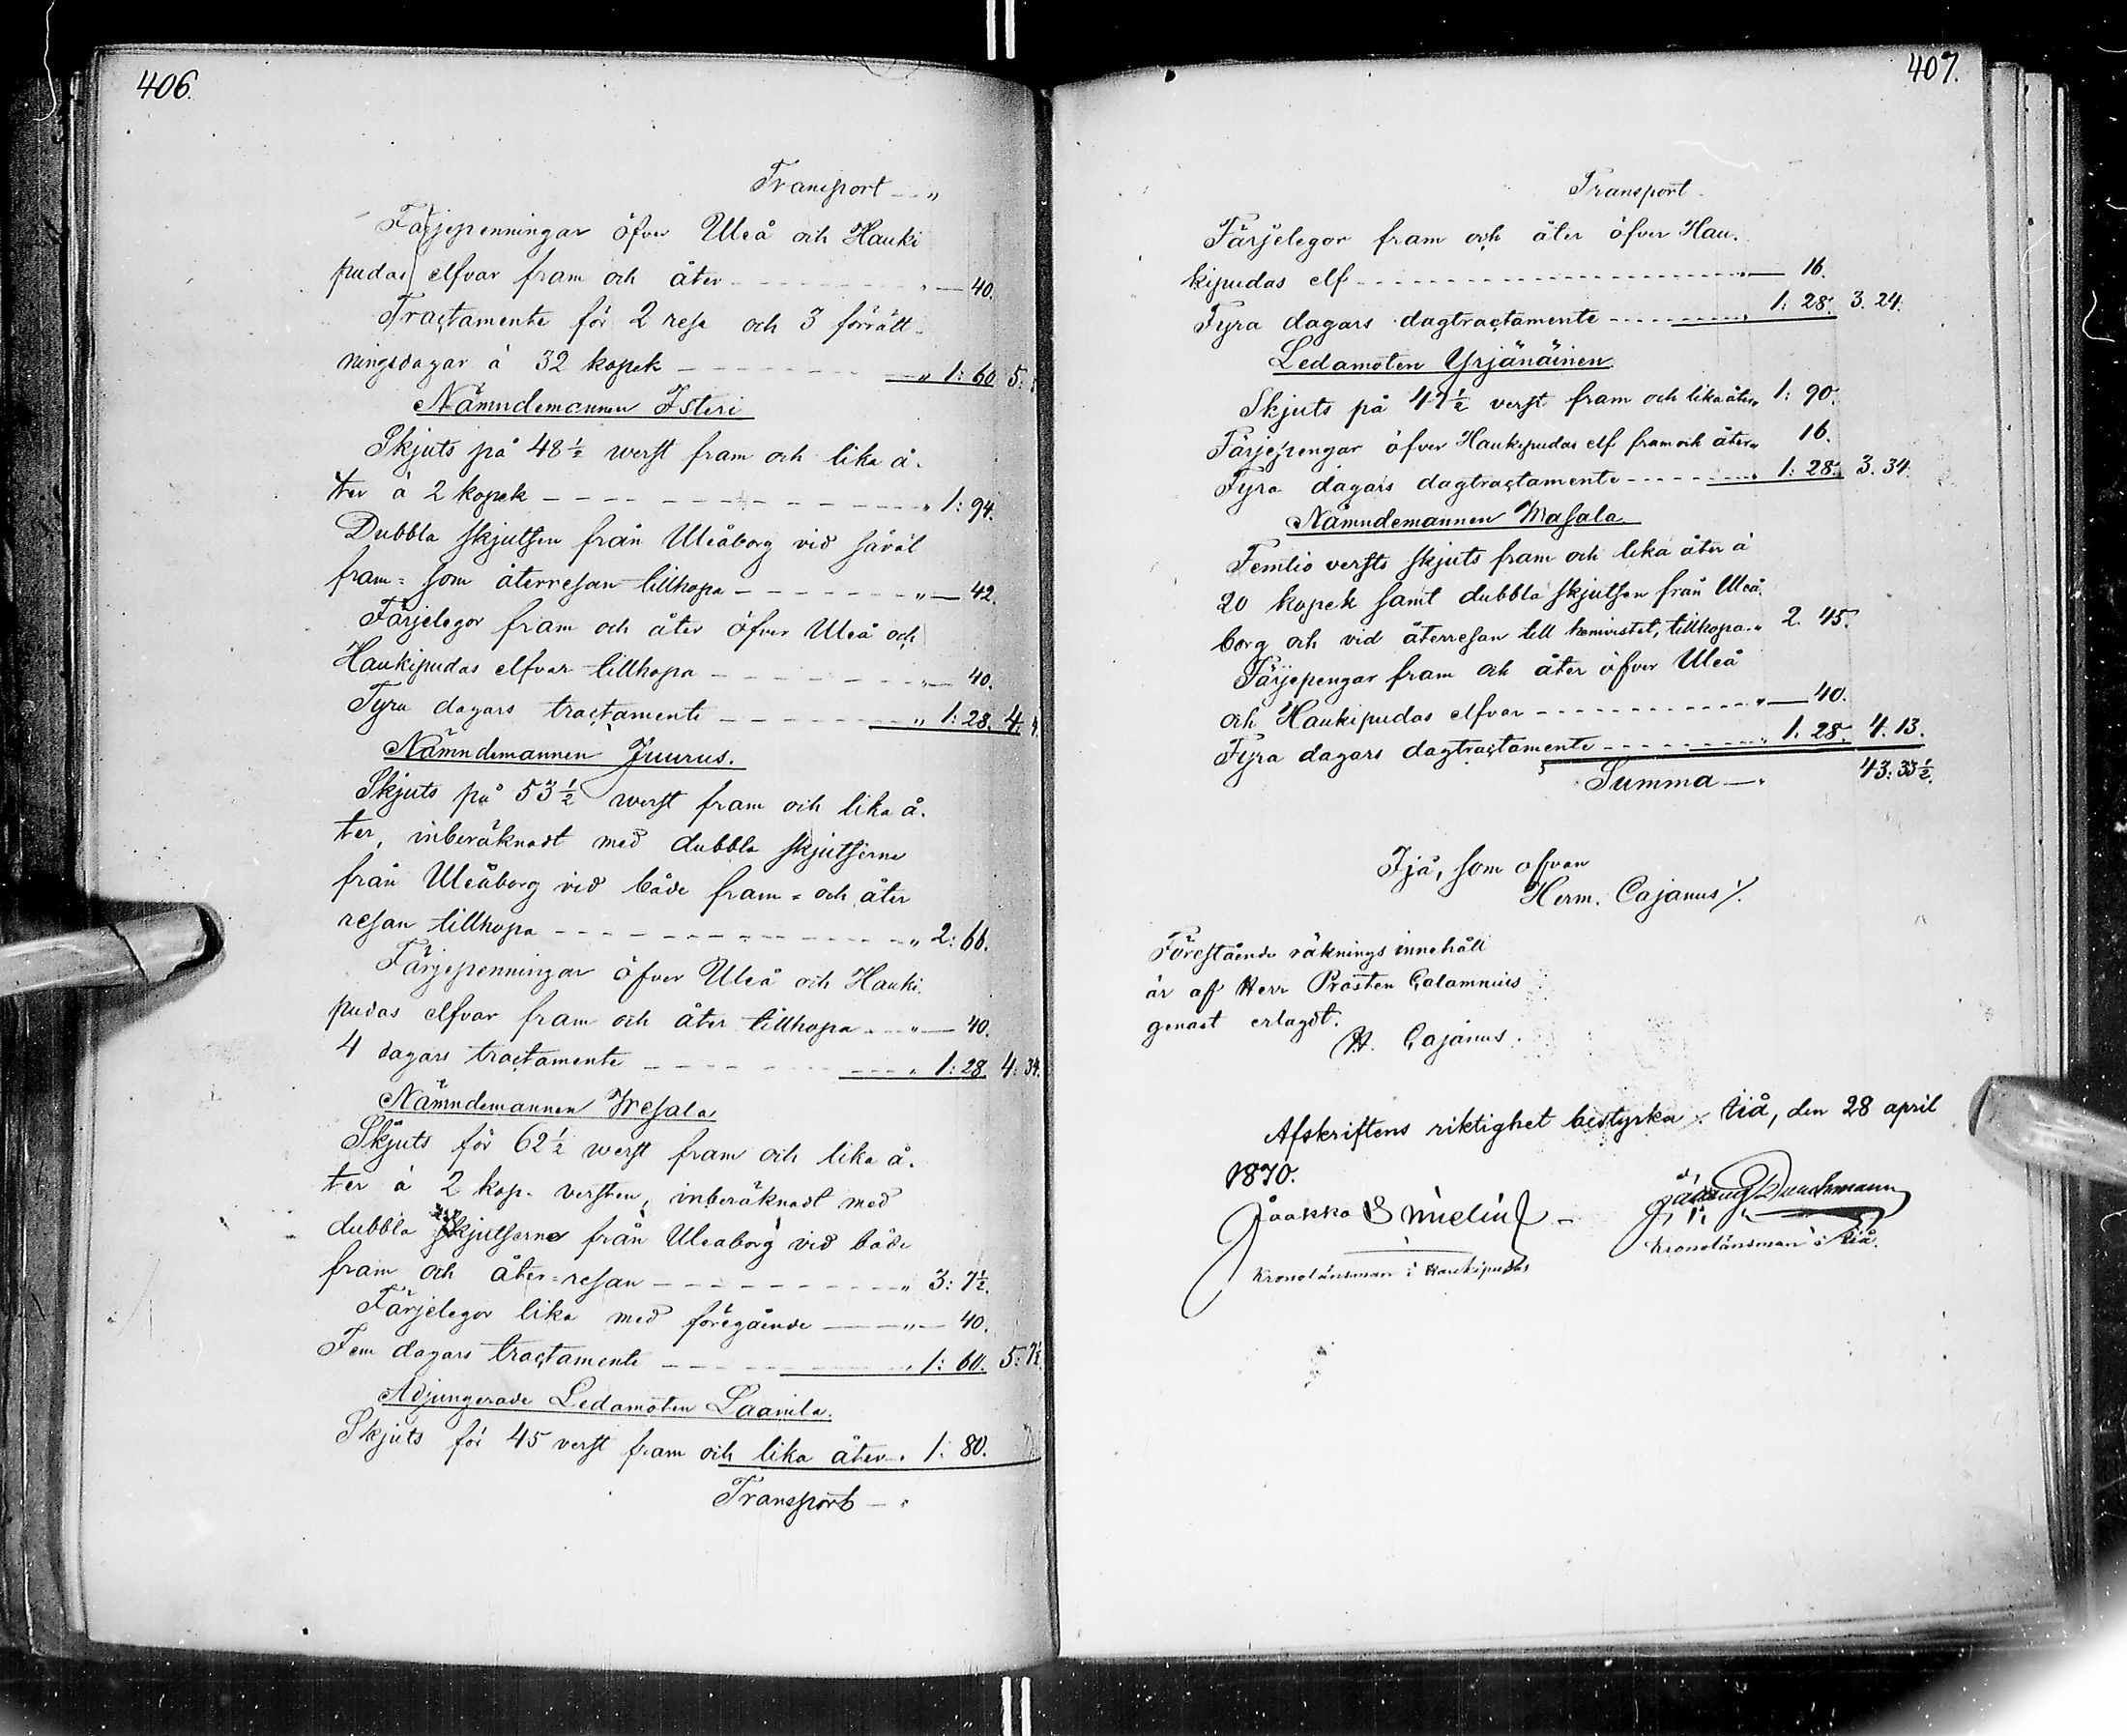 406.
Transport — "
Färjepenningar öfver Uleå och Hauki
pudas elfvar fram och åter - - - - " — 40.
Tractamente för 2 rese och 3 förrätt-
ningsdagar à 32 kopek - - - - " 1: 60. 5:
Nämndemannen Isteri
Skjuts på 48 1/2 werst fram och lika å-
ter à 2 kopek - - - - " 1: 94.
Dubbla skjutsen från Uleåborg vid såväl
fram= som återresan tillhopa - - - - " — 42.
Färjelegor fram och åter öfver Uleå och
Haukipudas elfvar tillhopa - - - - " — 40.
Fyra dagars tractamente - - - - " 1: 28. 4:
Nämndemannen Juurus.
Skjuts på 53 1/2 werst fram och lika å-
ter, inberäknadt med dubbla skjutserne
från Uleåborg vid både fram= och åter
resan tillhopa - - - - " 2: 66.
Färjepenningar öfver Uleå och Hauki
pudas elfvar fram och åter tillhopa - - " — 40.
4 dagars tractamente - - - - " 1: 28. 4: 34.
Nämndemannen Wesala
Skjuts för 62 1/2 werst fram och lika å-
ter à 2 kop. versten, inberäknadt med
dubbla skjutserne från Uleåborg vid både
fram och åter=resan - - - - " 3: 7 1/2.
Färjelegor lika med föregående — " — 40.
Fem dagars tractamente - - - - " 1: 60. 5: 7 1/2.
Adjungerade Ledamoten Laanila.
Skjuts för 45 verst fram och lika åter " 1: 80.
Transport — "
407.
Transport
Färjelegor fram och åter öfver Hau-
kipudas elf - - - - " — 16.
Fyra dagars dagtractamente - - - - " 1: 28. 3. 24.
Ledamoten Yrjänäinen
Skjuts på 47 1/2 verst fram och lika åter " 1: 90.
Färjepengar öfver Haukipudas elf fram och åter " 16.
Fyra dagars dagtractamente - - - - " 1: 28. 3. 34.
Nämndemannen Masala
Femtio versts skjuts fram och lika åter à
20 kopek samt dubbla skjutsen från Uleå-
borg och vid återresan till hemvistet, tillhopa " 2. 45.
Färjepengar fram och åter öfver Uleå
och Haukipudas elfvar - - - - " — 40.
Fyra dagars dagtractamente - - - - " 1. 28. 4. 13.
Summa — " 43: 33 1/2.
Ijå, som ofvan
Herm. Cajanus /.
Förestående räknings innehåll
är af Herr Prosten Calamnius
genast erlagdt.
H. Cajanus.
Afskriftens riktighet bestyrka; Iiå, den 28 april
1870.
Jaakko Smelin
Kronolänsman i Haukipudas
Kronolänsman i Iiå.